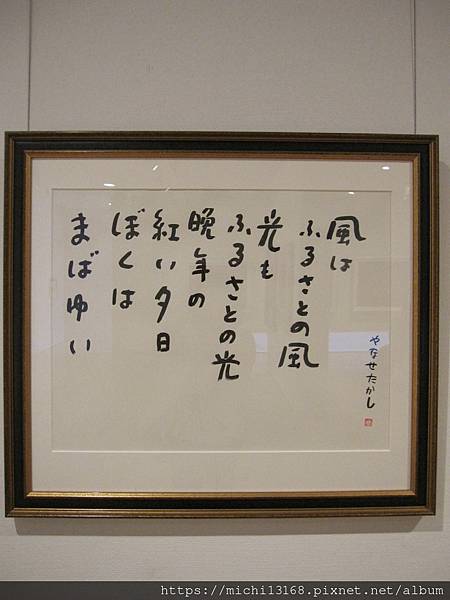 風は
ふるさとの風
光も
ふるさとの光
晩年の
紅い夕日
ぼくは
まばゆい
やなせたかし
https://michi13168.pixnet.net/album